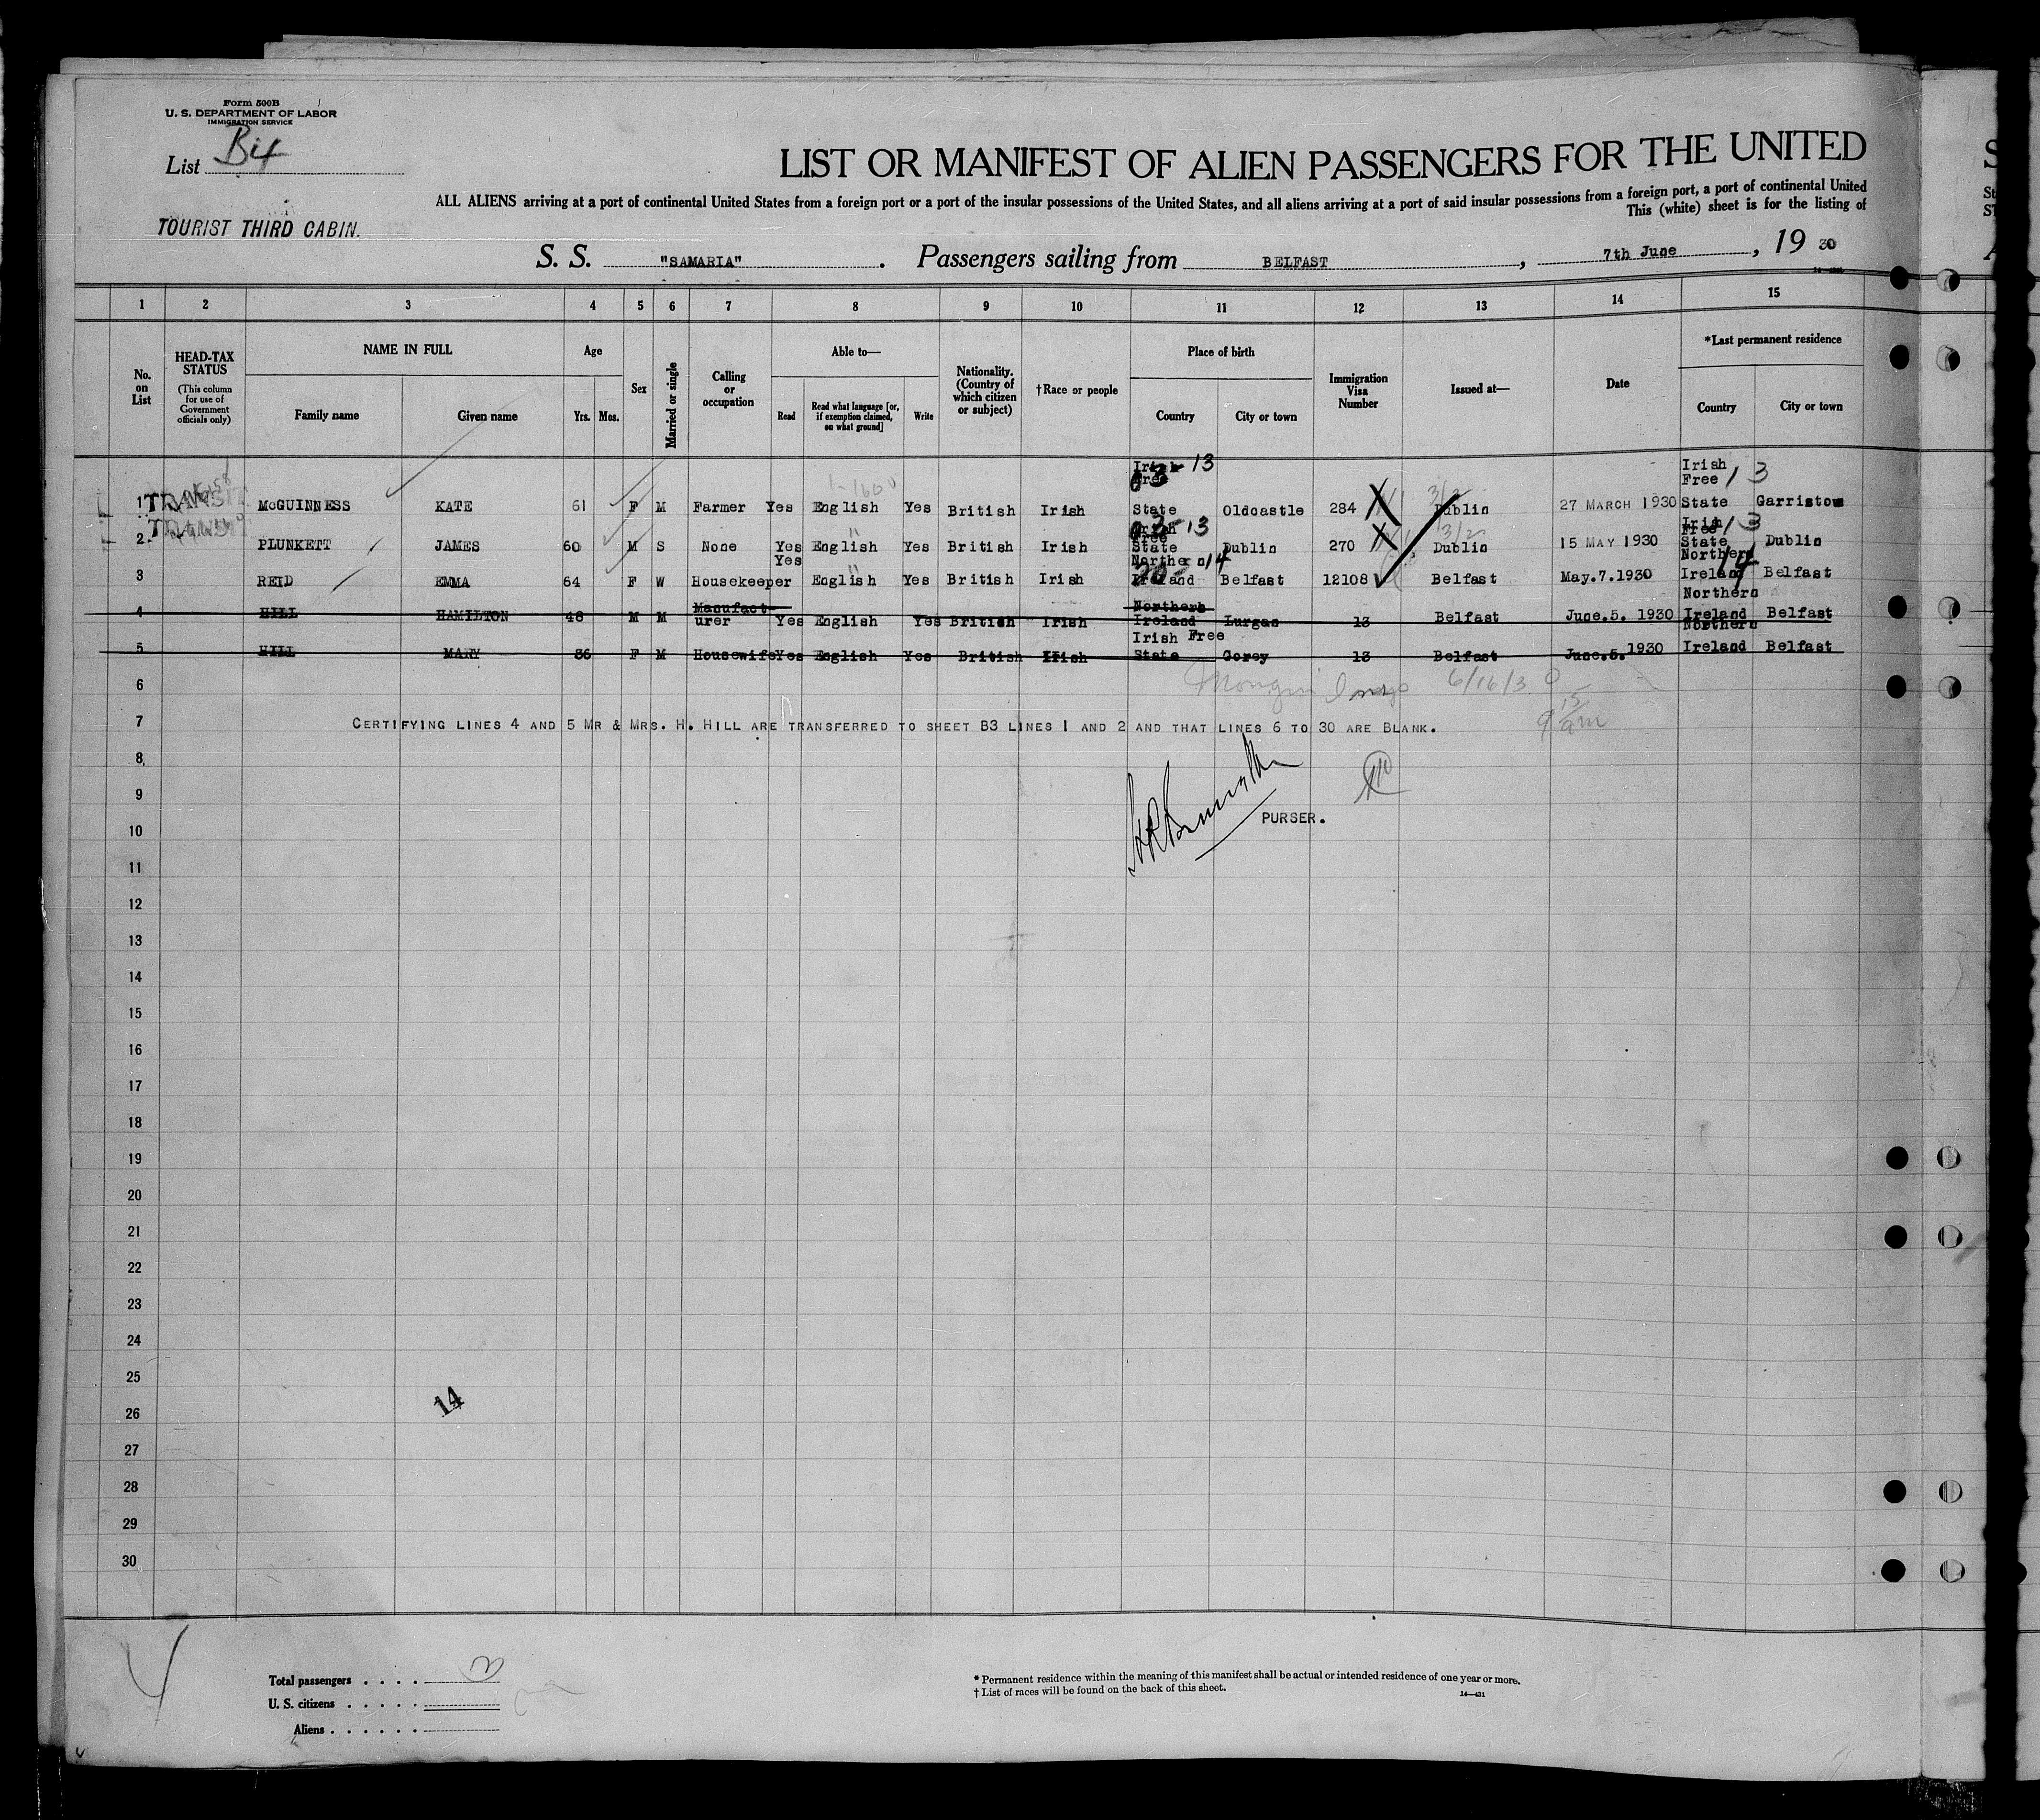 Form 500B
U. S. DEPARTMENT OF LABOR
IMMIGRATION SERVICE
List B4
LIST OR MANIFEST OF ALIEN PASSENGERS FOR THE UNITED
ALL ALIENS arriving at a port of continental United States from a foreign port or a port of the insular possessions of the United States, and all aliens arriving at a port of said insular possessions from a foreign port, a port of continental United
This (white) sheet is for the listing of
TOURIST THIRD CABIN.
S. S. "SAMARIA" . Passengers sailing from BELFAST , 7th June , 19 30
1 2 3 4 5 6 7 8 9 10 11 12 13 14 15
No. on List
HEAD-TAX STATUS (This column for use of Government officials only)
NAME IN FULL Family name Given name
Age Yrs. Mos.
Sex
Married or single
Calling or occupation
Able to— Read Read what language [or, if exemption claimed, on what ground] Write
Nationality. (Country of which citizen or subject)
†Race or people
Place of birth Country City or town
Immigration Visa Number
Issued at—
Date
*Last permanent residence Country City or town
1 TRANSIT McGUINNESS KATE 61 F M Farmer Yes English Yes British Irish Irish Free State Oldcastle 284 Dublin 27 MARCH 1930 Irish Free State Garristow
2 TRANSIT PLUNKETT JAMES 60 M S None Yes English Yes British Irish Irish Free State Dublin 270 Dublin 15 MAY 1930 Irish Free State Dublin
3 REID EMMA 64 F W Housekeeper Yes English Yes British Irish Northern Ireland Belfast 12108 Belfast May.7.1930 Northern Ireland Belfast
4 HILL HAMILTON 48 M M Manufacturer Yes English Yes British Irish Northern Ireland Lurgan 13 Belfast June.5. 1930 Northern Ireland Belfast
5 HILL MARY 36 F M Housewife Yes English Yes British Irish Irish Free State Gorey 13 Belfast June.5. 1930 Northern Ireland Belfast
6 6/16/30
7 CERTIFYING LINES 4 AND 5 MR & MRS. H. HILL ARE TRANSFERRED TO SHEET B3 LINES 1 AND 2 AND THAT LINES 6 TO 30 ARE BLANK.
8
9
PURSER.
10
11
12
13
14
15
16
17
18
19
20
21
22
23
24
25
26
14
27
28
29
30
Total passengers . . . . 3
U. S. citizens . . . . .
Aliens . . . . . .
* Permanent residence within the meaning of this manifest shall be actual or intended residence of one year or more.
† List of races will be found on the back of this sheet.
14—421